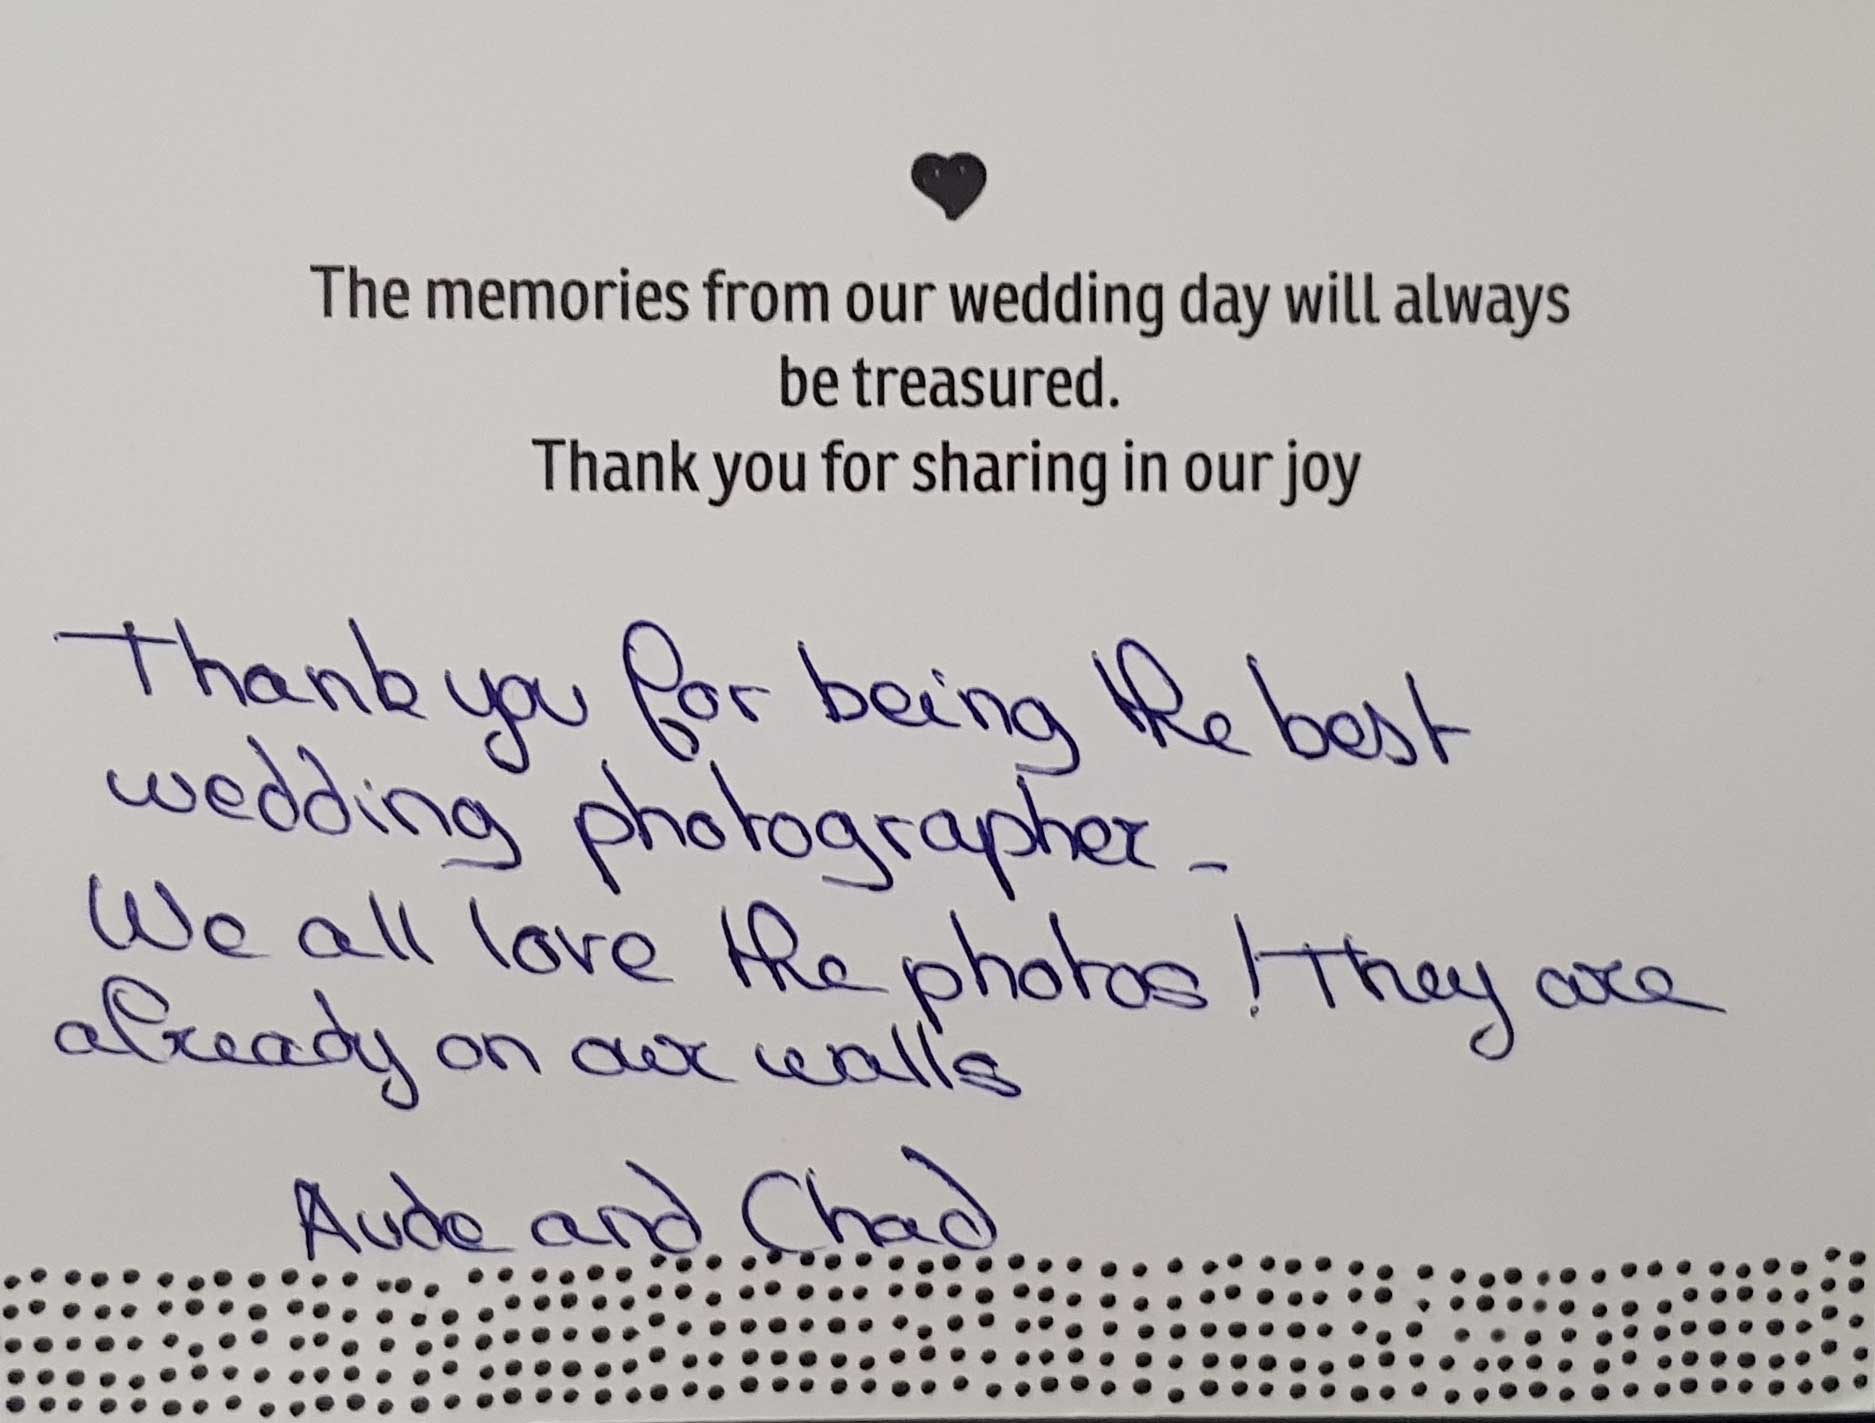 The memories from our wedding day will always
be treasured.
Thank you for sharing in our joy
Thank you for being the best
wedding photographer -
We all love the photos! They are
already on our walls
Aude and Chad